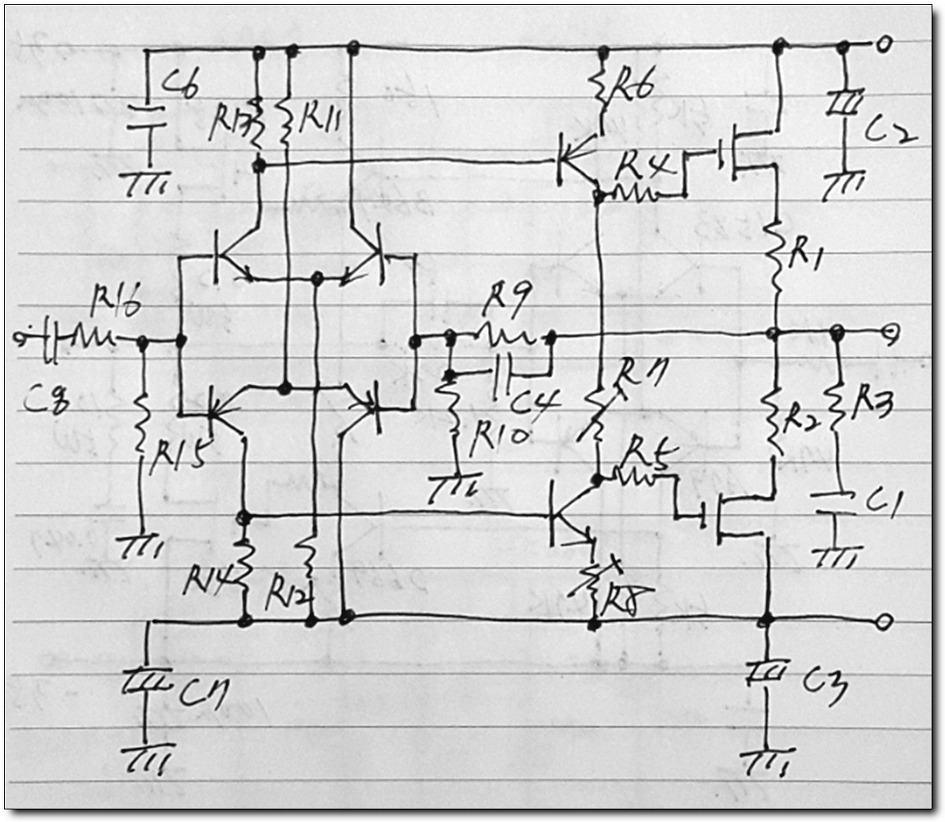 C6
R13
R11
R6
C2
R4
R1
R16
R9
C8
R7
C4
R2
R3
R10
R15
R5
C1
R14
R12
R8
C7
C3